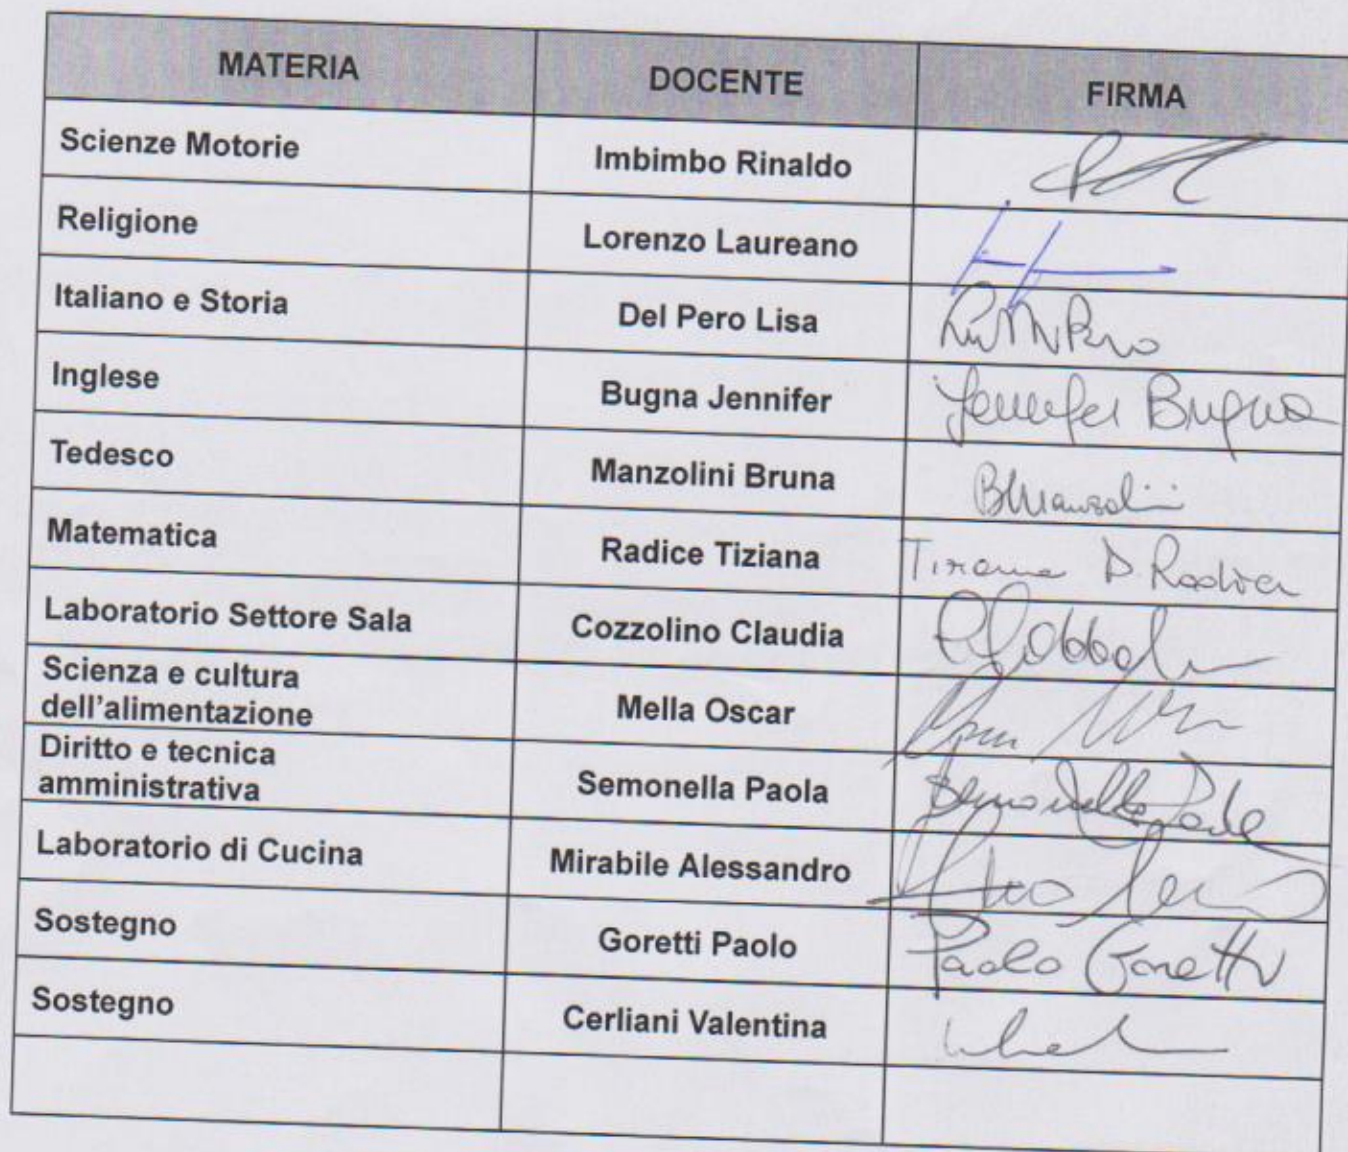 MATERIA DOCENTE FIRMA
Scienze Motorie Imbimbo Rinaldo
Religione Lorenzo Laureano
Italiano e Storia Del Pero Lisa
Inglese Bugna Jennifer Jennifer Bugna
Tedesco Manzolini Bruna BManzolini
Matematica Radice Tiziana Tiziana D. Radice
Laboratorio Settore Sala Cozzolino Claudia
Scienza e cultura
dell'alimentazione Mella Oscar
Diritto e tecnica
amministrativa Semonella Paola Semonella Paola
Laboratorio di Cucina Mirabile Alessandro
Sostegno Goretti Paolo Paolo Goretti
Sostegno Cerliani Valentina